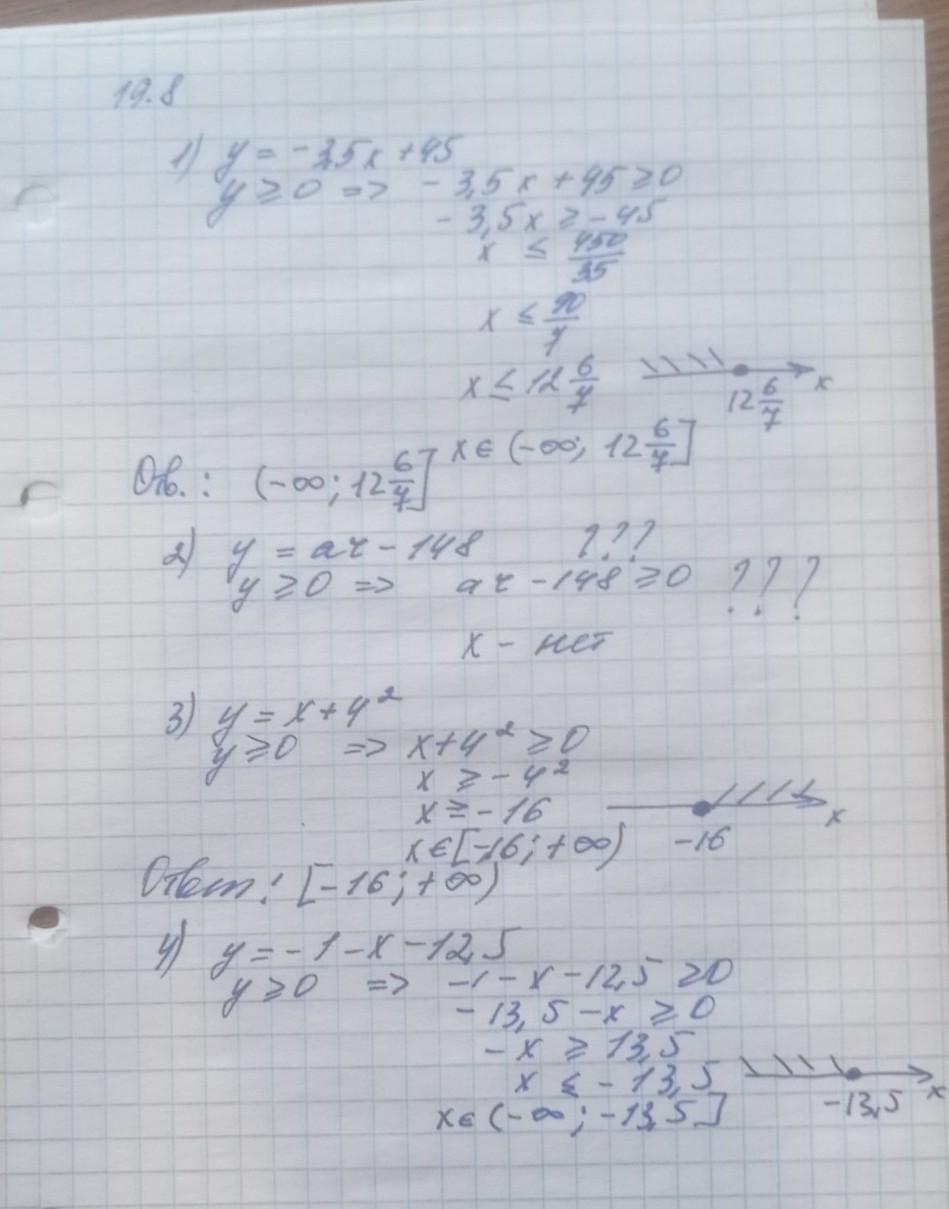 19.8
1) y = -3,5x + 45
y ≥ 0 => -3,5x + 45 ≥ 0
-3,5x ≥ -45
x ≤ 450/35
x ≤ 90/7
x ≤ 12 6/7
12 6/7 x
x ∈ (-∞; 12 6/7]
Отв.: (-∞; 12 6/7]
2) y = ar - 148 ???
y ≥ 0 => ar - 148 ≥ 0 ???
x - нет
3) y = x + 4²
y ≥ 0 => x + 4² ≥ 0
x ≥ -4²
x ≥ -16
-16 x
x ∈ [-16; +∞)
Ответ: [-16; +∞)
4) y = -1 - x - 12,5
y ≥ 0 => -1 - x - 12,5 ≥ 0
-13,5 - x ≥ 0
-x ≥ 13,5
x ≤ -13,5
-13,5 x
x ∈ (-∞; -13,5]